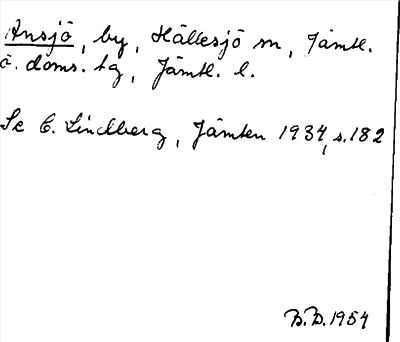 Ansjö, by, Hällesjö sn, Jämtl.
ö. doms. tg, Jämtl. l.
Se C. Lindberg, Jämten 1934, s. 182
B.D. 1954